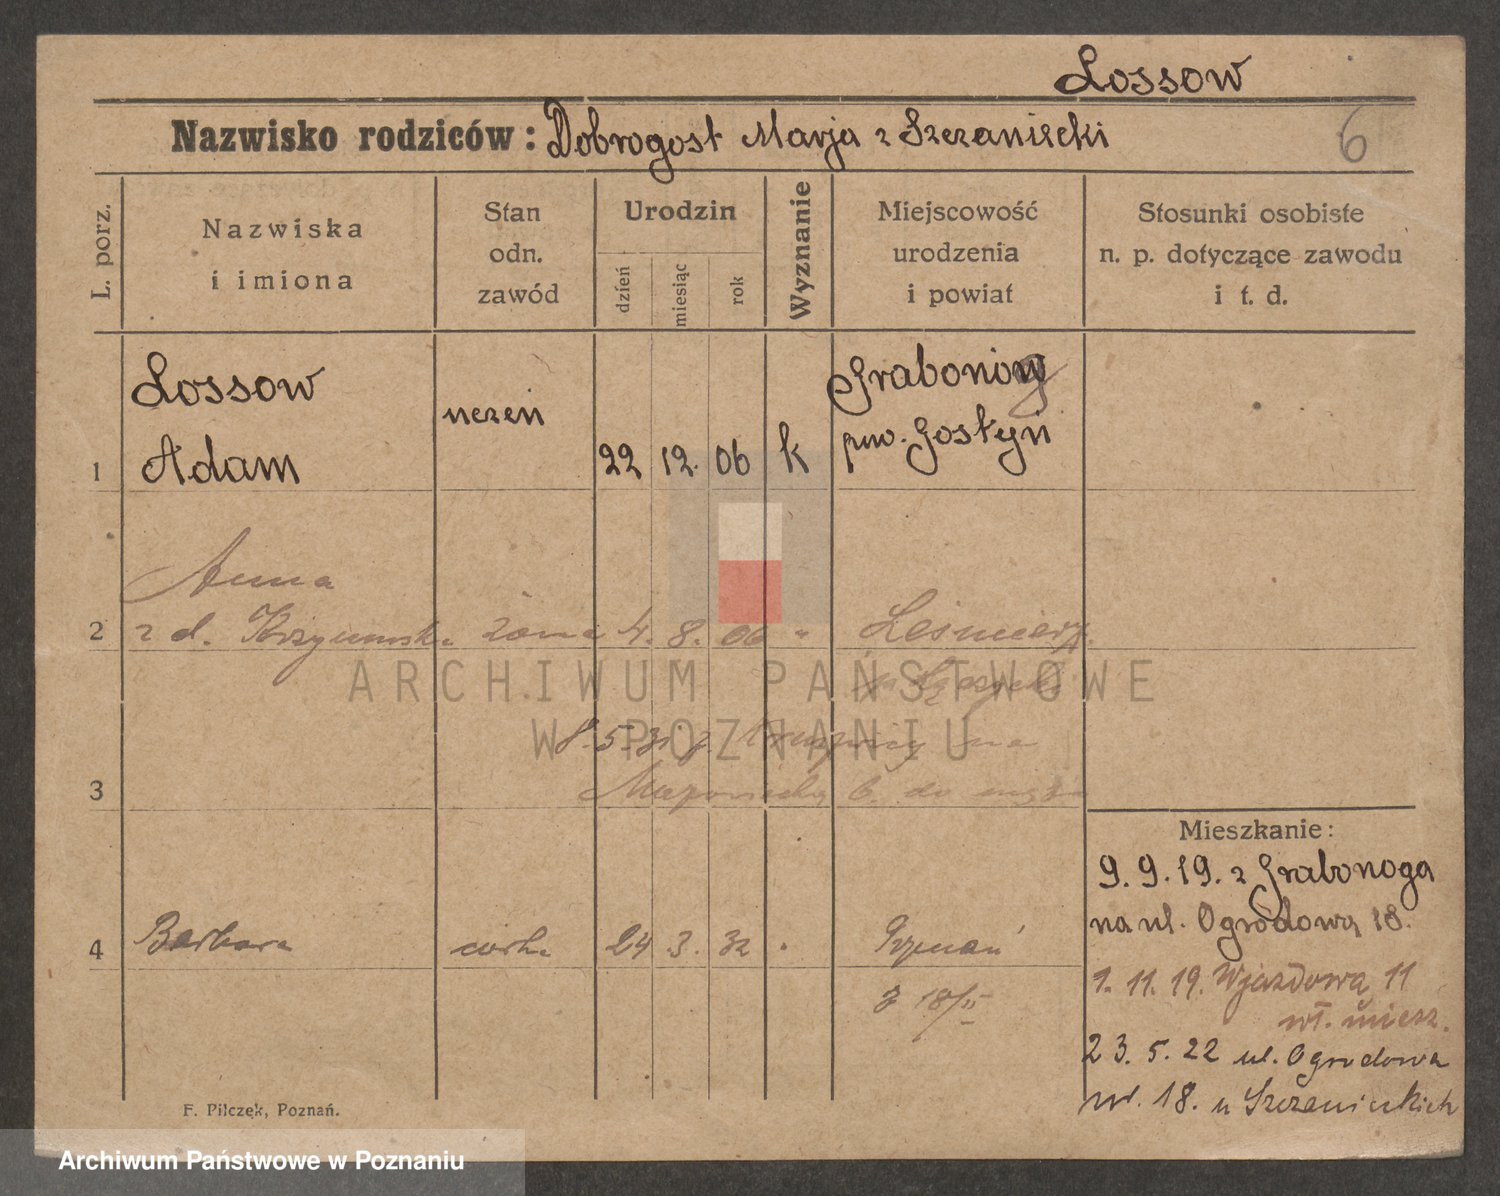 Lossow
Nazwisko rodziców: Dobrogost Marja z Szczaniecki
6
L. porz.
Nazwiska
i imiona
Stan
odn.
zawód
Urodzin
dzień
miesiąc
rok
Wyznanie
Miejscowość
urodzenia
i powiat
Stosunki osobiste
n. p. dotyczące zawodu
i t. d.
1
Lossow
Adam
uczeń
22 12. 06 k
Grabonóg
pow. Gostyń
2
Anna
z d. Krzymuska żona 4. 8. 06 "
Leśmierz
ARCHIWUM PAŃSTWOWE
W POZNANIU
8.5.31 z na
3
b. do męża
Mieszkanie:
9.9.19. z Grabonoga
na ul. Ogrodową 18.
1.11.19. Wjazdowa 11
wł. miesz.
23.5.22 ul. Ogrodowa
nr. 18. u Szczanieckich
4
Barbara córka 24 3. 32 "
Poznań
z 18/5
F. Pilczek, Poznań.
Archiwum Państwowe w Poznaniu